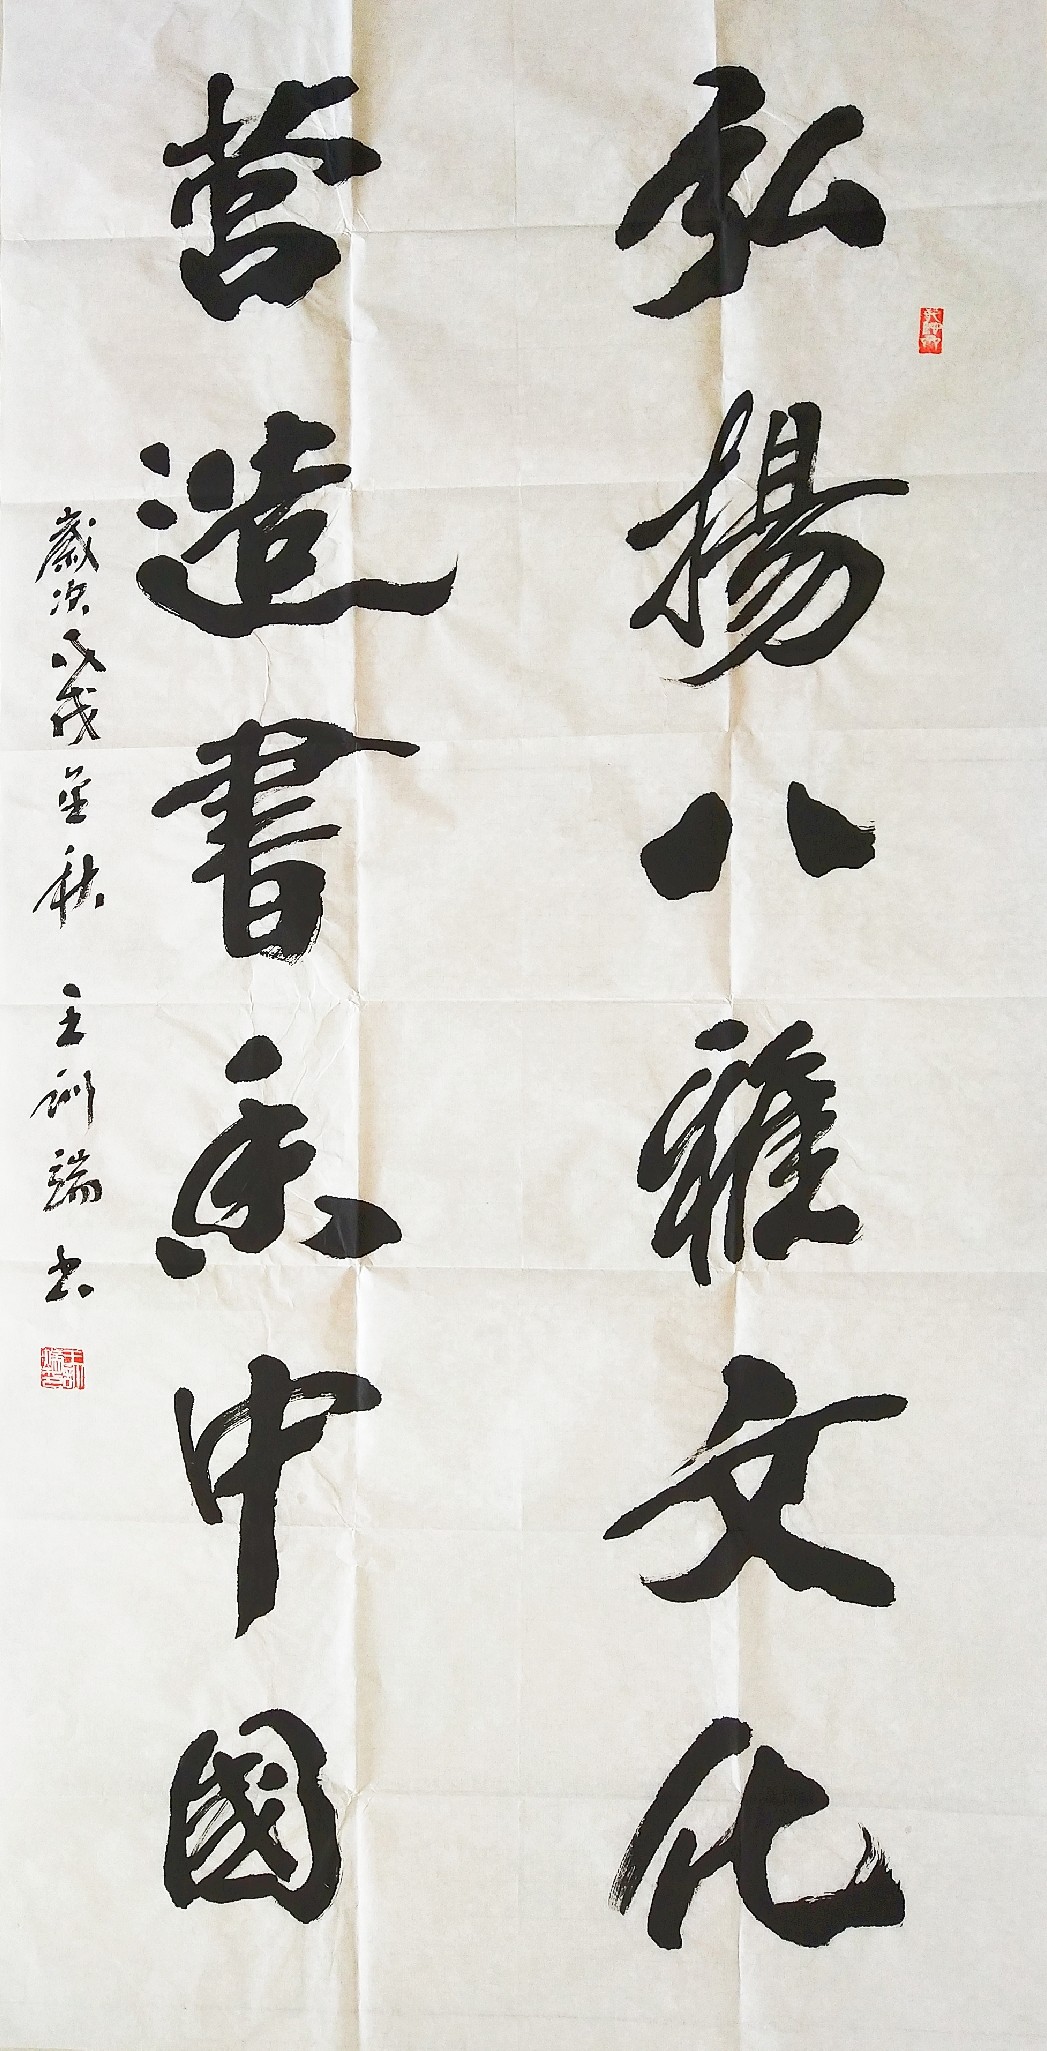 弘揚八雅文化
营造書香中國
歲次戊戌金秋 王訓端书